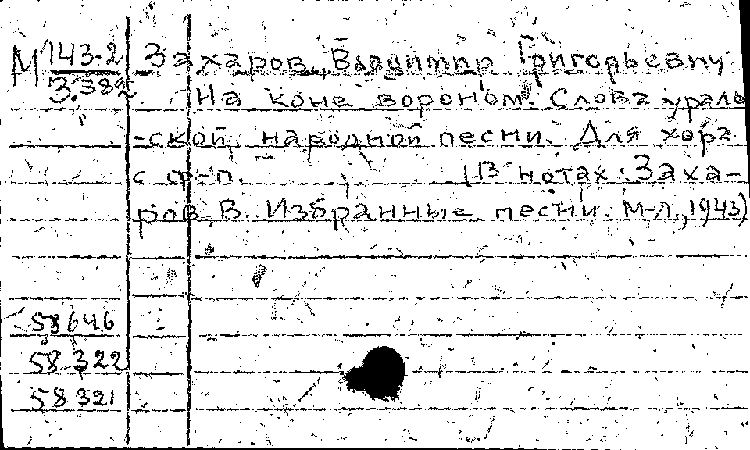 М 143.2 Захаров, Владимир Григорьевич
3.382 На коне вороном. Слова ураль
-ской народной песни. Для хора
с ф-п. (В нотах: Заха-
ров, В. Избранные песни. М-Л., 1943)
58646
58322
58321